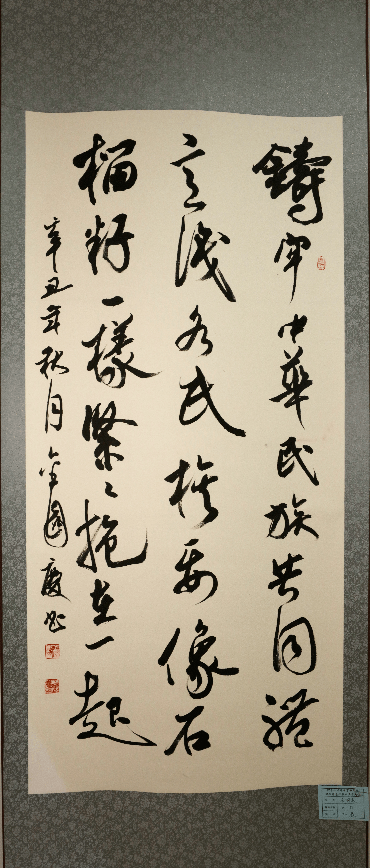 鑄牢中華民族共同體
意識各民族要像石
榴籽一樣緊々抱在一起
辛丑年秋月金國慶書